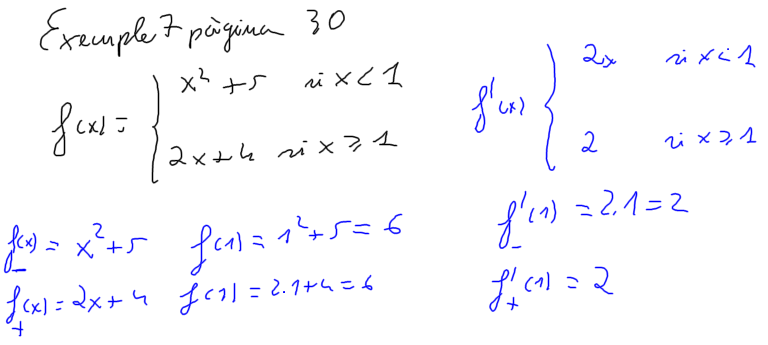 Exemple 7 pàgina 30
f(x) = { x² + 5 si x < 1
2x + 4 si x ≥ 1
f'(x) { 2x si x < 1
2 si x ≥ 1
f₋(x) = x² + 5 f(1) = 1² + 5 = 6
f₊(x) = 2x + 4 f(1) = 2.1 + 4 = 6
f'₋(1) = 2.1 = 2
f'₊(1) = 2